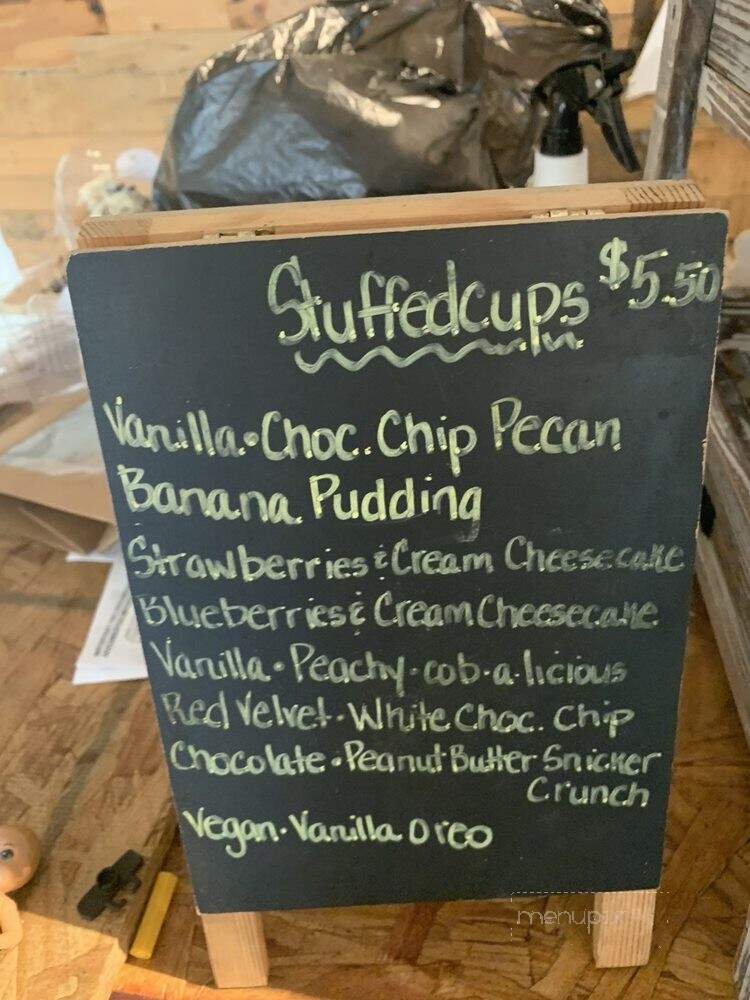 StuffedCups $5.50
Vanilla • Choc. Chip Pecan
Banana Pudding
Strawberries & Cream Cheesecake
Blueberries & Cream Cheesecake
Vanilla • Peachy-cob-a-licious
Red Velvet • White Choc. Chip
Chocolate • Peanut Butter Snicker
Crunch
Vegan • Vanilla Oreo